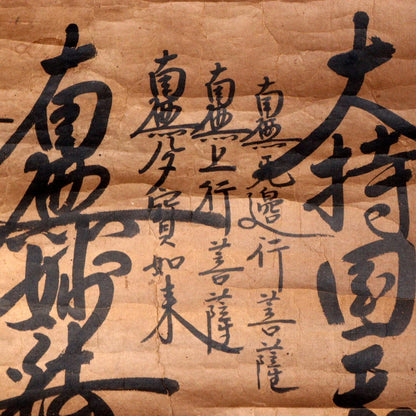 大持国天
南無無邊行菩薩
南無上行菩薩
南無多寳如来
南無妙法